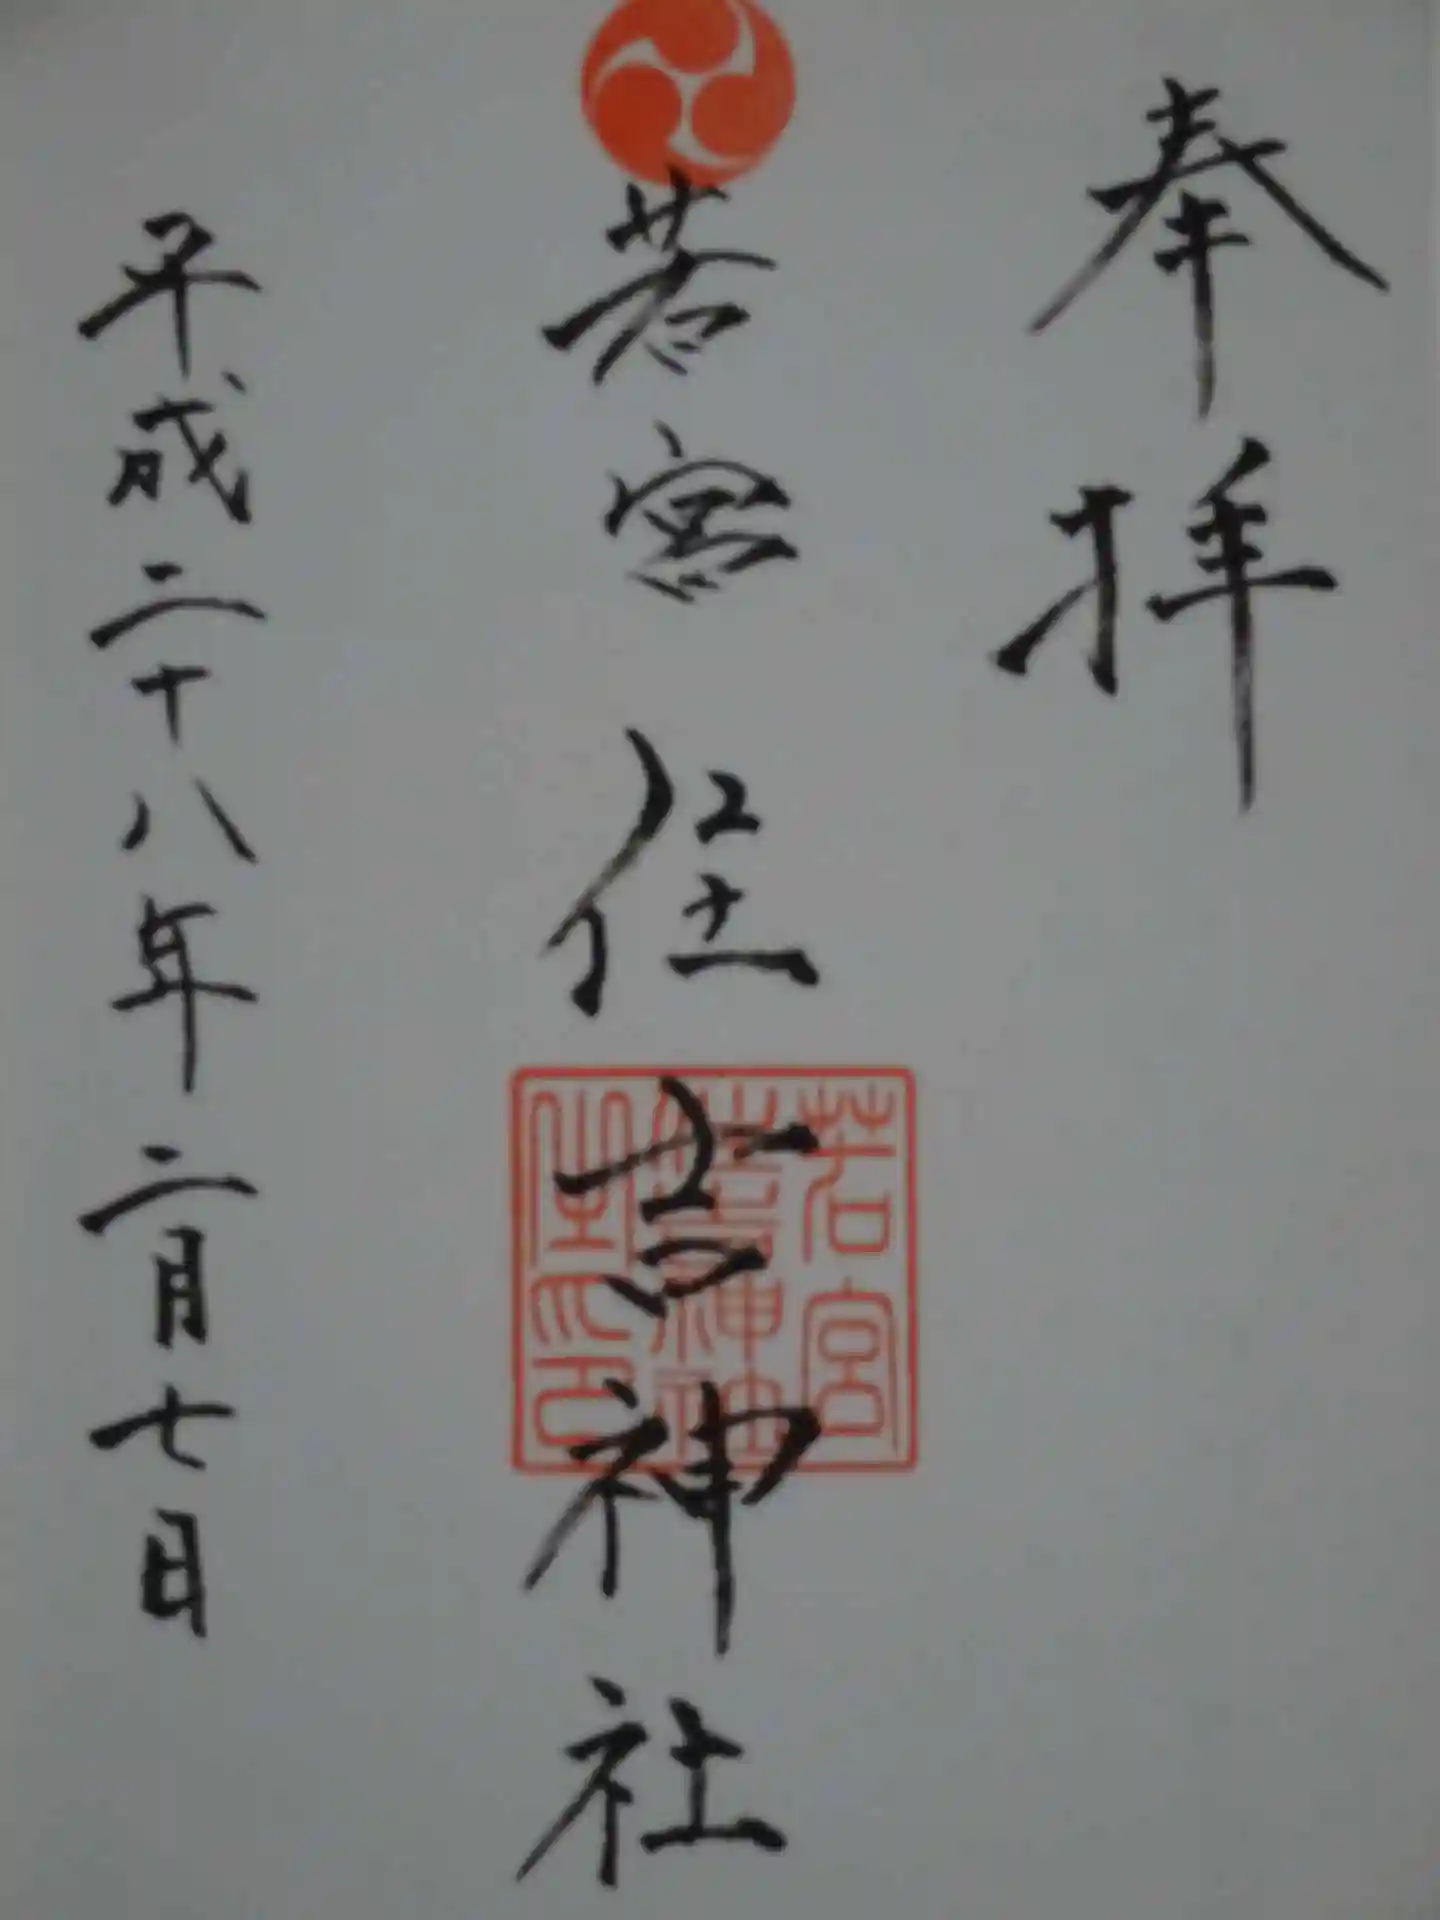 奉拝
若宮住吉神社
平成二十八年二月七日
若宮
住吉神社
之印